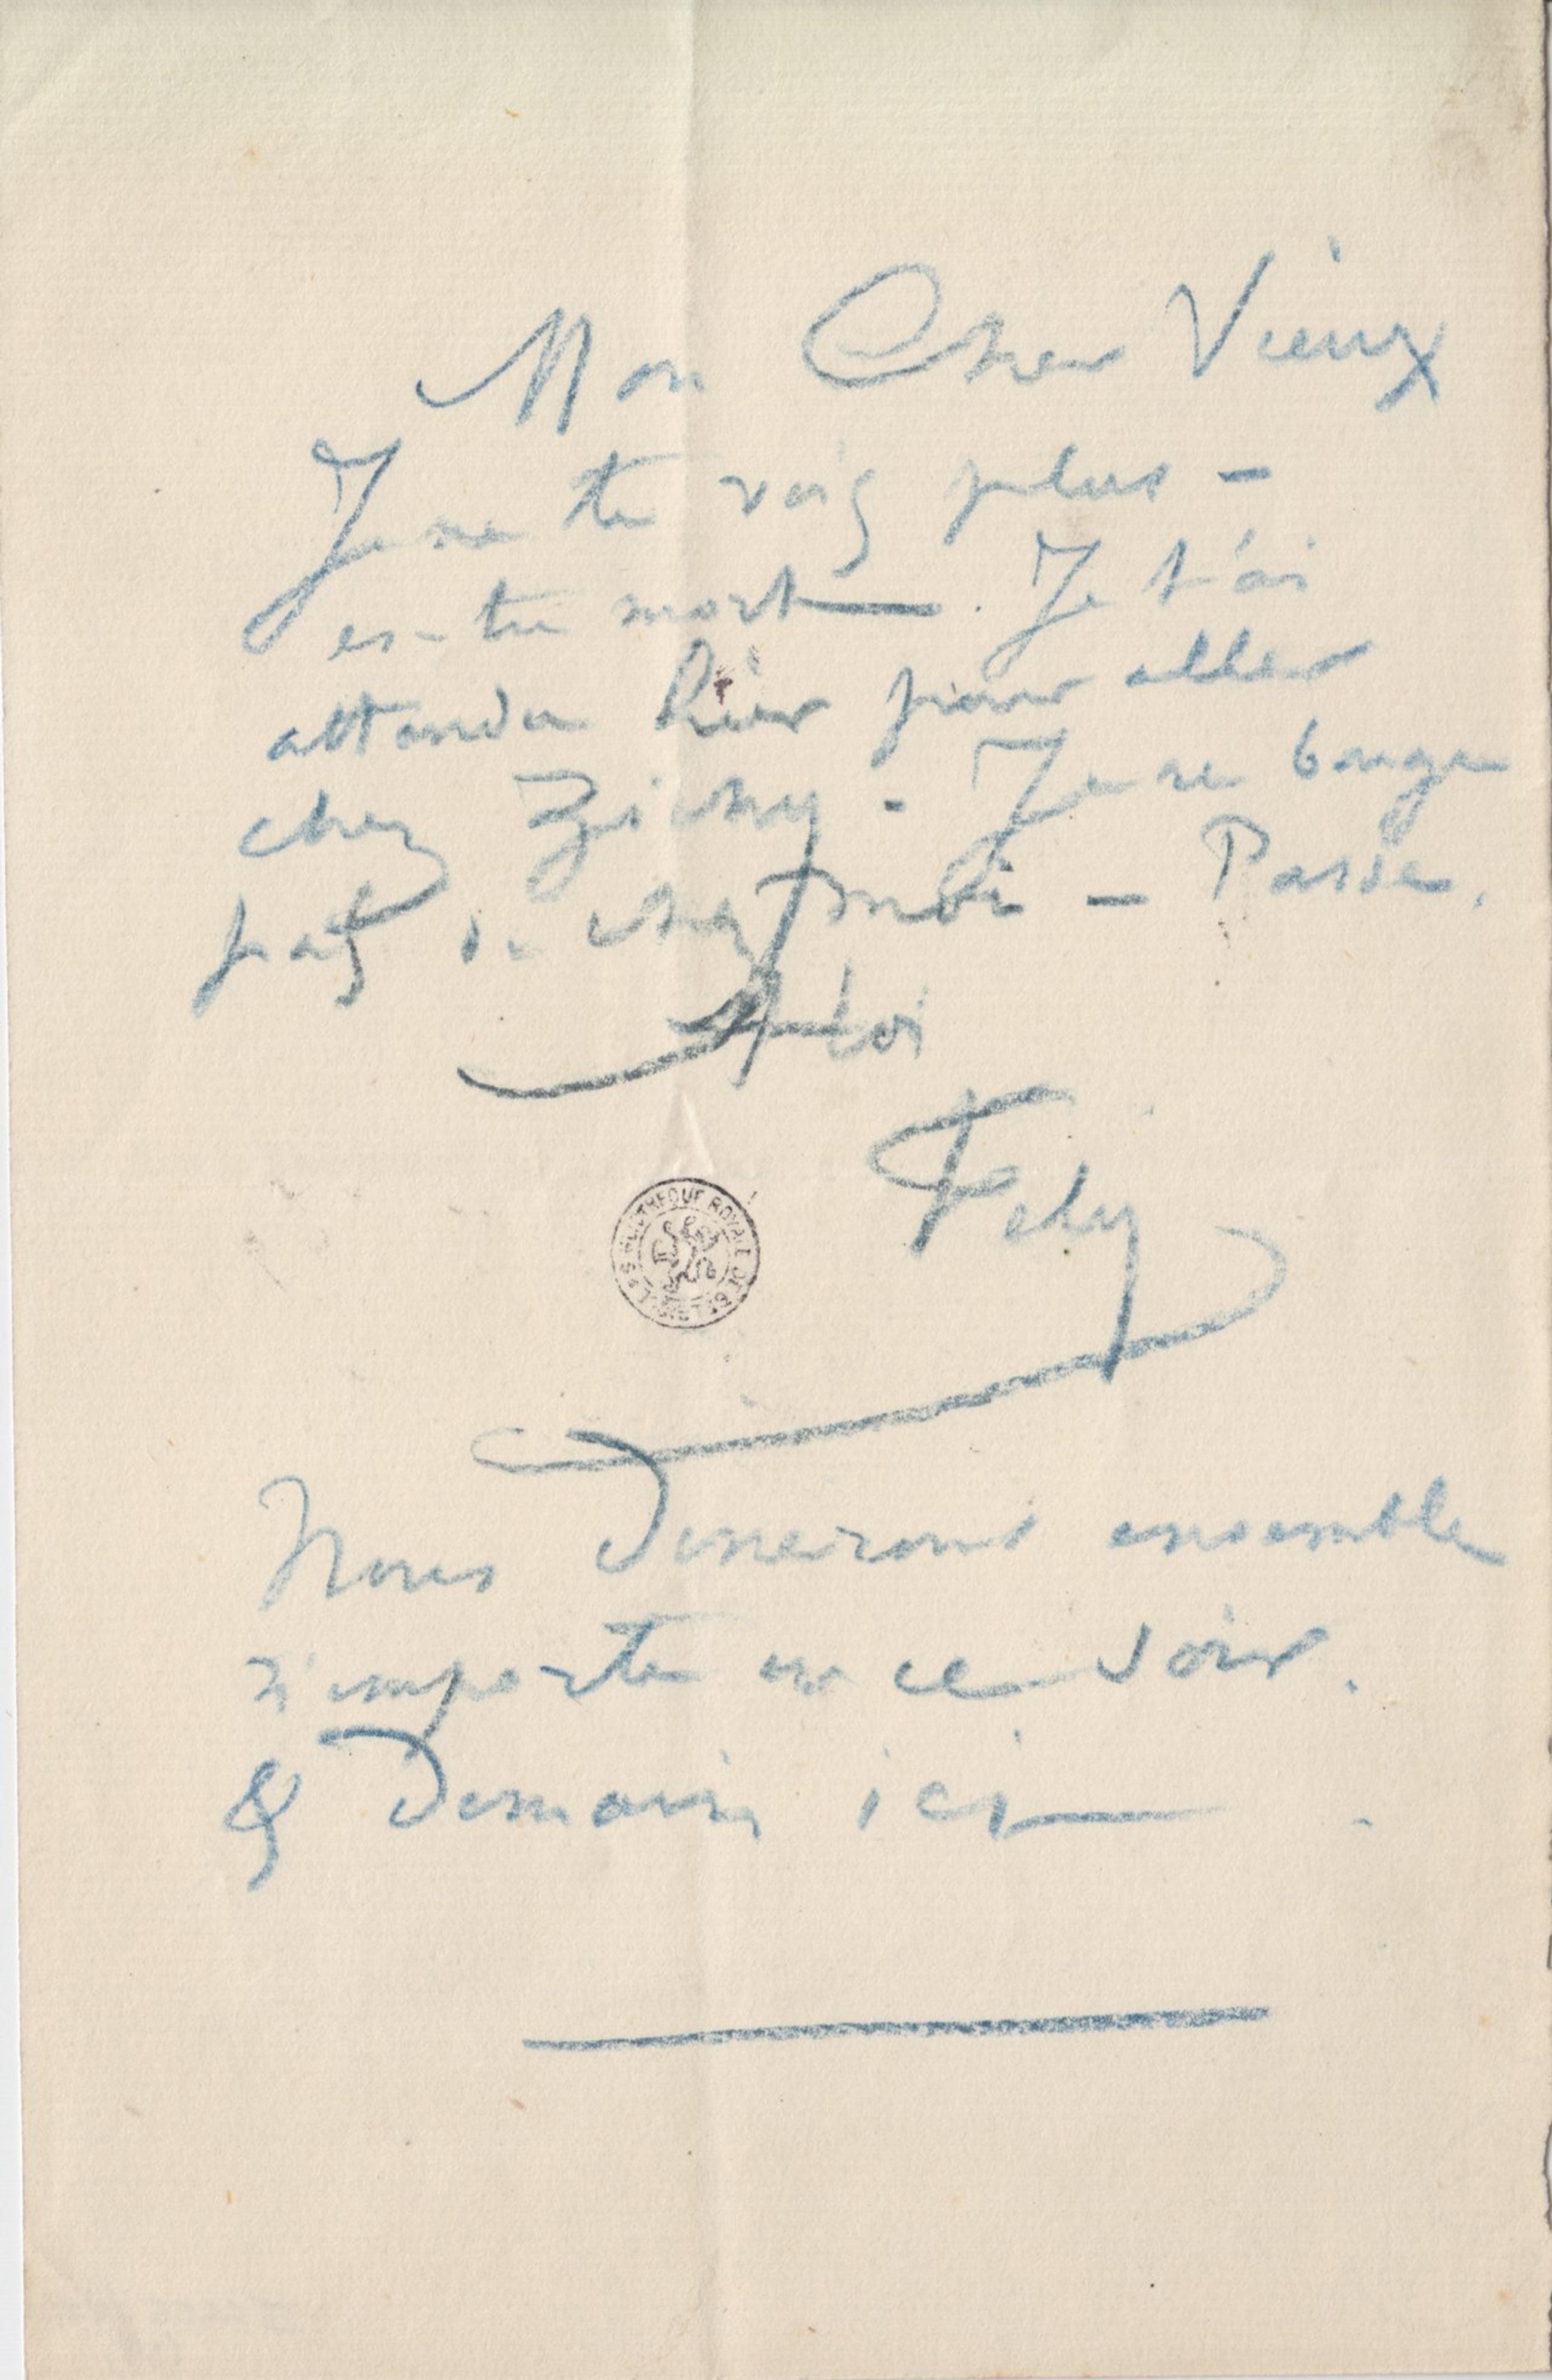 Mon Cher Vieux
Je ne te vois plus –
es-tu mort — . Je t'ai
attendu hier pour aller
chez Zichy . Je ne bouge
pas de chez moi – Passe.
A toi
Fély
BIBLIOTHEQUE ROYALE DE
Nous dinerons ensemble
n'importe où ce soir.
& demain ici — .